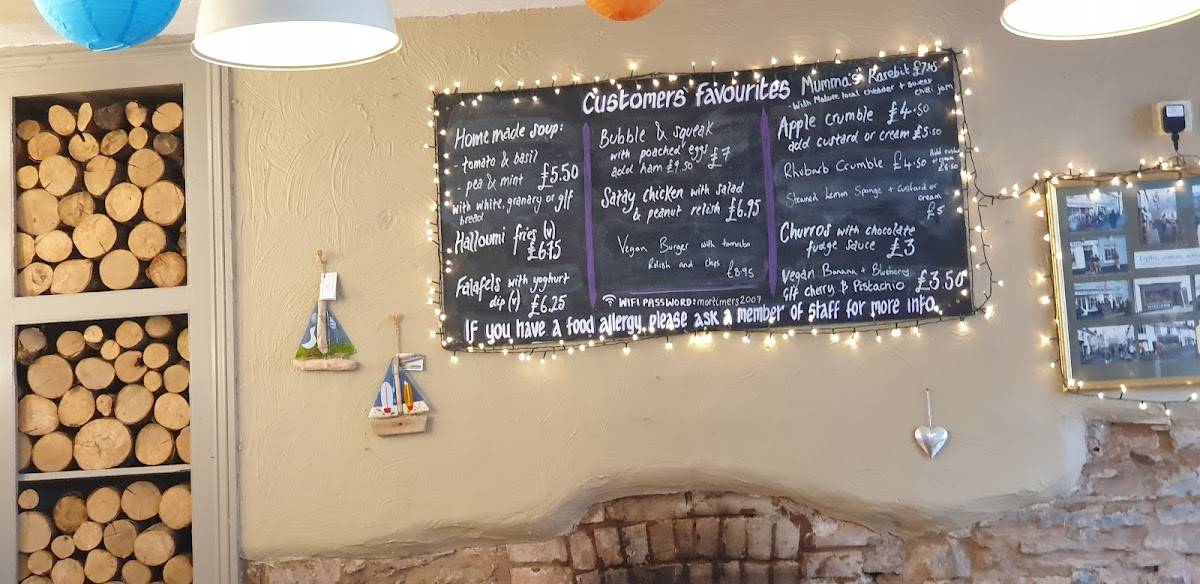 Customers' favourites
Homemade soup:
- tomato & basil
- pea & mint £5.50
with white, granary or g/f
bread
Halloumi fries (v)
£6.75
Falafels with yoghurt
dip (v) £6.25
Bubble & squeak
with poached eggs £7
add ham £9.50
Satay chicken with salad
& peanut relish £6.95
Vegan Burger with tomato
Relish and chips
£8.95
WIFI PASSWORD: mortimers2007
Mumma's Rarebit £7.45
- With mature local cheddar + sweet
chilli jam
Apple crumble £4.50
add custard or cream £5.50
Rhubarb Crumble £4.50 Add custard
or cream
£5.50
Steamed Lemon Sponge + custard or
cream
£5
Churros with chocolate
fudge sauce £3
Vegan Banana & Blueberry
Gff cherry & Pistachio £3.50
If you have a food allergy, please ask a member of staff for more info.